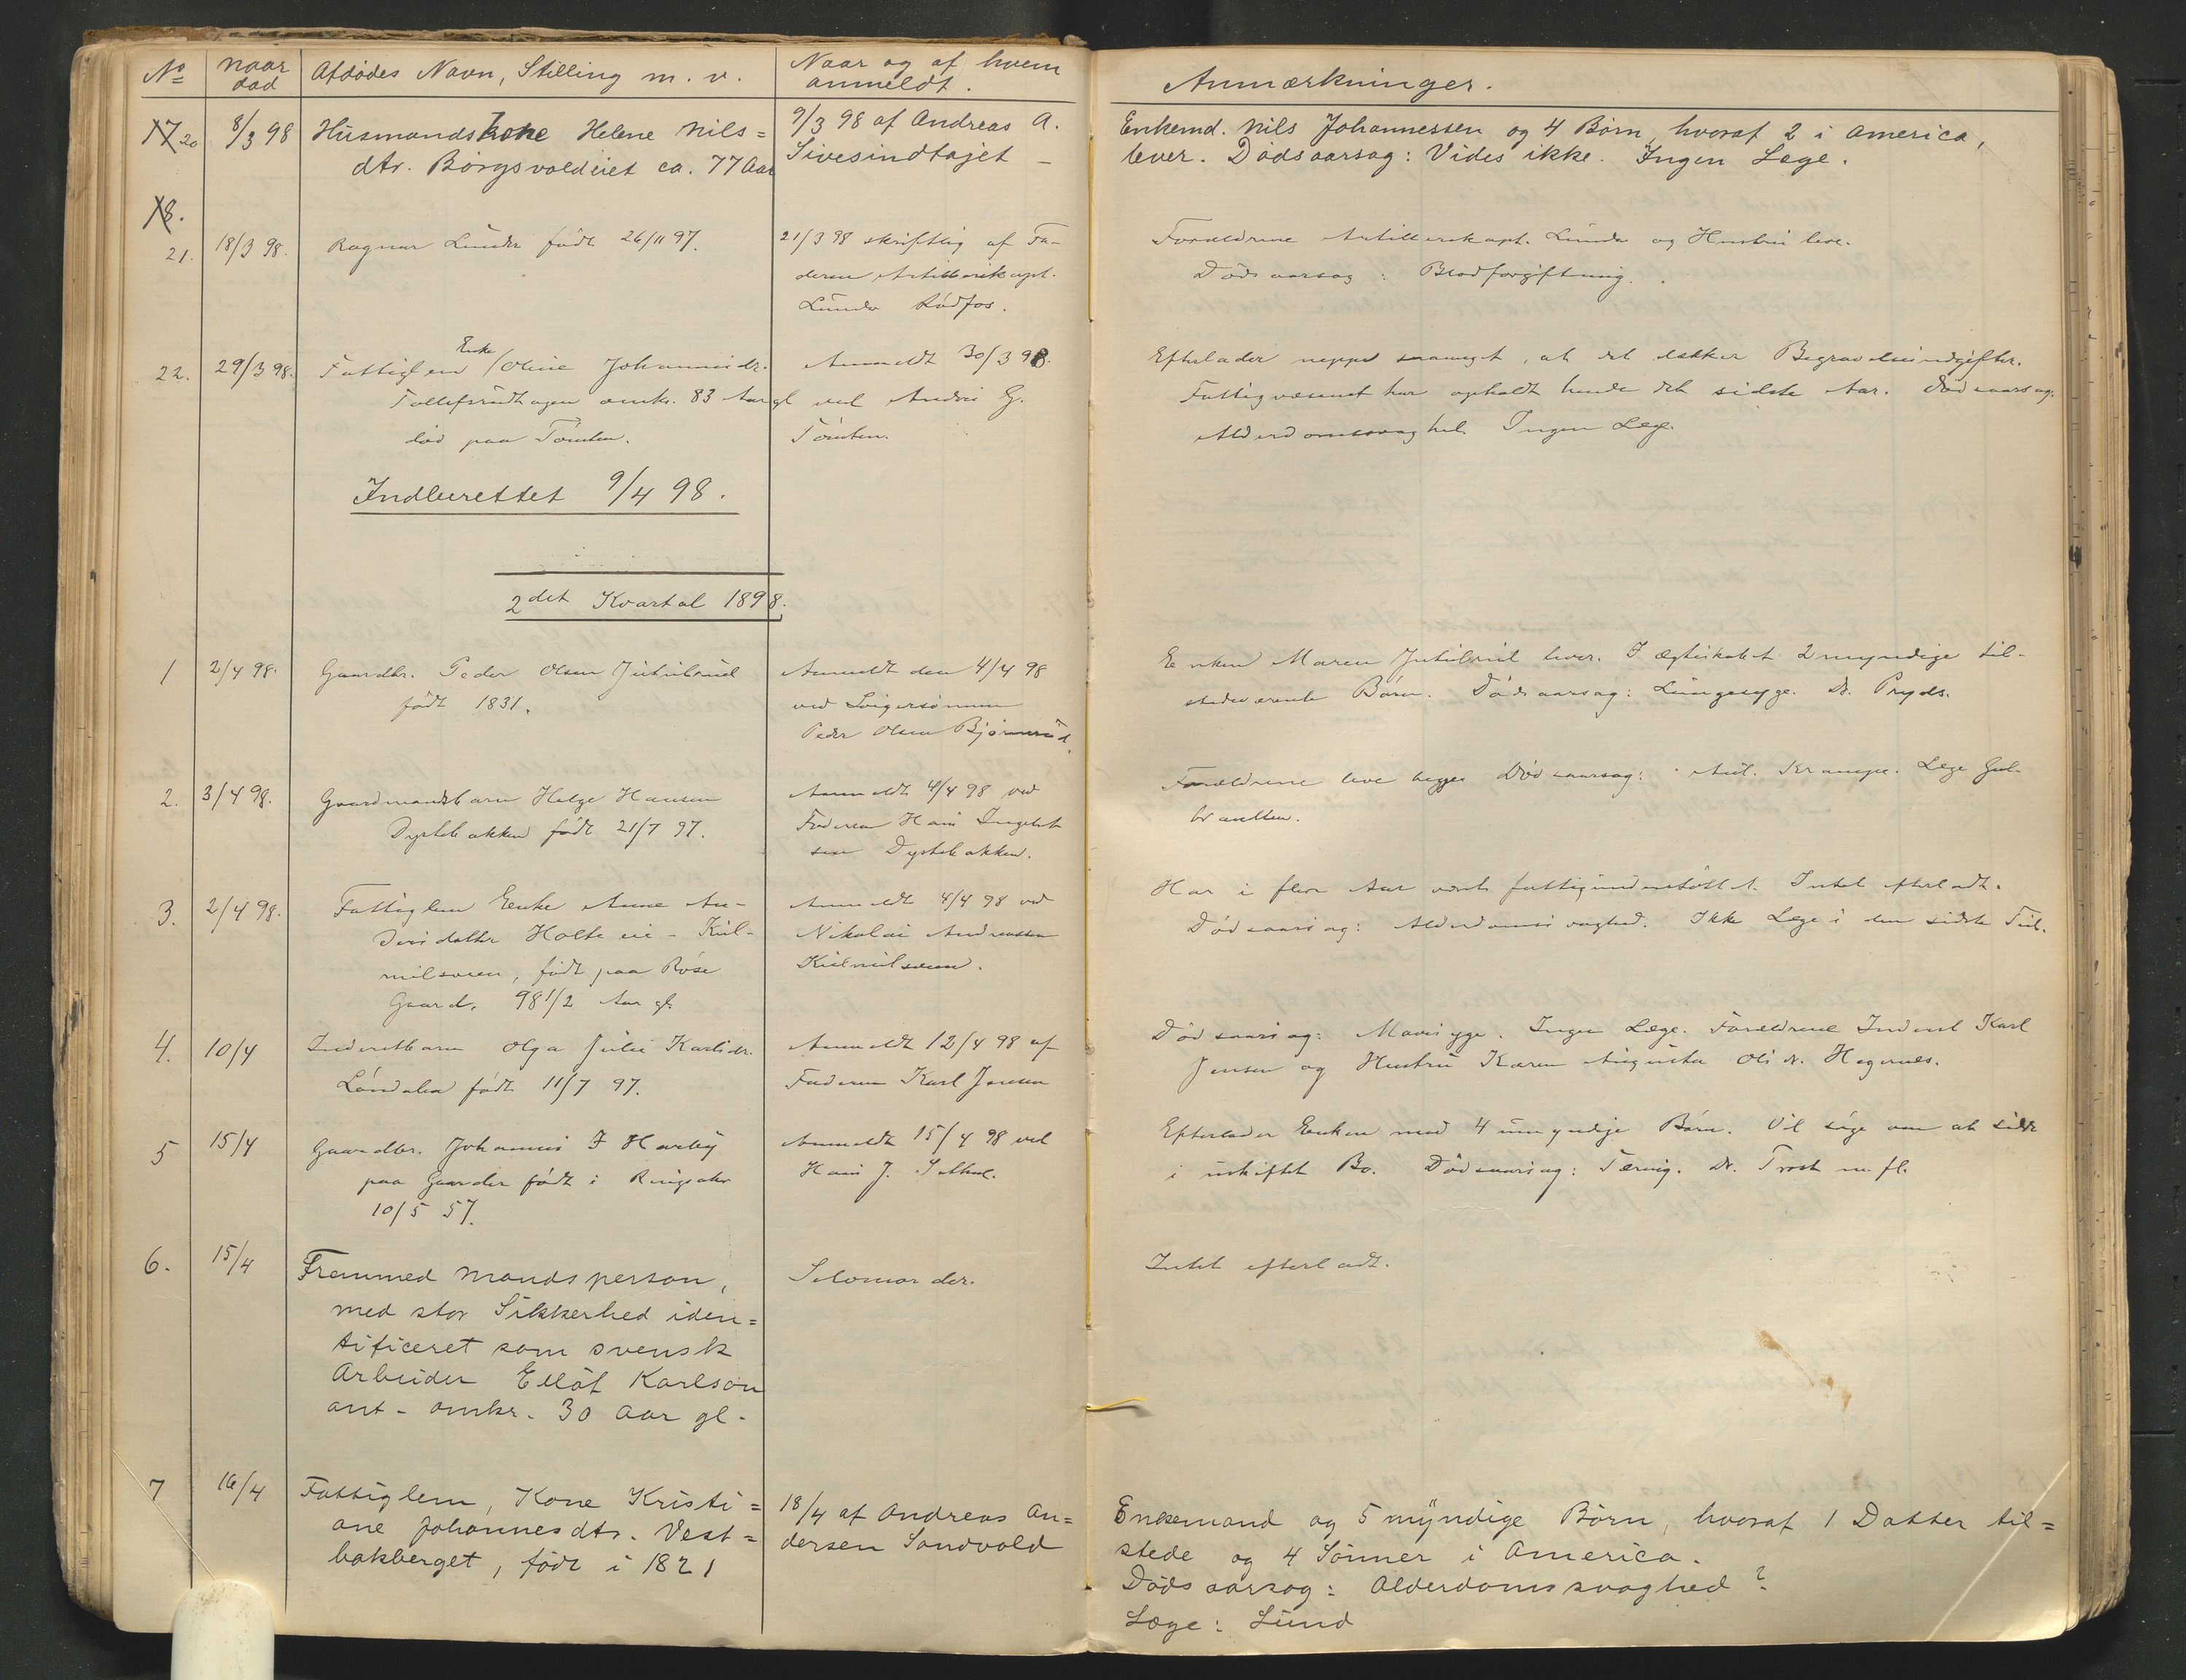 No
naar
død
Afdødes Navn, Stilling m. v.
Naar og af hvem
anmeldt.
Anmærkninger.
17 20
8/3 98
Husmandskone Helene Nils=
dtr. Borgsvoldeiet ca. 77 Aar
9/3 98 af Andreas A.
Sivesindtajet –
Enkemd. Nils Johannessen og 4 Børn, hvoraf 2 i America,
lever. Dødsaarsag: Vides ikke. Ingen Læge.
18.
21.
18/3 98.
Ragnar Lunde født 26/11 97.
21/3 98 skriftlig af Fa-
deren Artillerikapt.
Lunde Rødfos.
Forældrene Artillerikapt. Lunde og Hustru leve.
Dødsaarsag: Blodforgiftning.
22.
29/3 98.
Fattiglem Enke Oline Johannisdr.
Tollefsrudhagen omkr. 83 Aar gl
død paa Tømten.
Anmeldt 30/3 98.
ved Andrs G.
Tømten.
Efterlader neppe saameget, at det dækker Begravelsesudgifter.
Fattigvæsenet har opholdt hende det sidste Aar. Dødsaarsag:
Alderdomssvaghed. Ingen Læge.
Indberettet 9/4 98.
2det Kvartal 1898.
1
2/4 98.
Gaardbr. Peder Olsen Jutulrud
født 1831.
Anmeldt den 4/4 98
ved Svigersønnen
Peder Olsen Bjørnerud.
Enken Maren Jutulrud lever. I ægteskabet 2 myndige til-
stedeværende Børn. Dødsaarsag: Lungesyge. Dr. Pryds.
2.
3/4 98.
Gaardmandsbarn Helge Hansen
Dystebakken født 21/7 97.
Anmeldt 4/4 98 ved
Faderen Hans Ingebret
sen Dystebakken.
Forældrene leve begge Dødsaarsag: Krampe. Læge Gul-
brandsen.
3.
2/4 98.
Fattiglem Enke Anne An-
dersdatter Holteeie - Kul-
milsveen, født paa Røse
Gaard. 98 1/2 Aar gl.
Anmeldt 4/4 98 ved
Nikolai Andreassen
Kulmilsveen.
Har i flere Aar været fattigunderstøttet. Intet efterladt.
Dødsaarsag: Alderdomssvaghed. Ikke Læge i den sidste Tid.
4.
10/4
Inderstbarn Olga Julie Karlsdr.
Løndalen født 11/7 97.
Anmeldt 12/4 98 af
Faderen Karl Jensen
Dødsaarsag: Mavesyge. Ingen Læge. Forældrene Inderst Karl
Jensen og Hustru Karen Augusta Olsdr. Hagernes.
5
15/4
Gaardbr. Johannes J Hveby
paa Gaarder født i Ringsaker
10/5 57.
Anmeldt 15/4 98 ved
Hans J.
Efterlader Enken med 4 umyndige Børn. Vil søge om at sidde
i uskiftet Bo. Dødsaarsag: Tæring. Dr. Trost m. fl.
6.
15/4
Fremmed Mandsperson,
med stor Sikkerhed iden=
tificeret som svensk
Arbeider Ellöf Karlson
ant - omkr. 30 Aar gl.
Intet efterladt.
7
16/4
Fattiglem, Kone Kristi=
ane Johannesdtr. Vest=
bakberget, født i 1821
18/4 af Andreas An=
dersen Sandvold
Enkemand og 5 myndige Børn, hvoraf 1 Datter til=
stede og 4 Sønner i America.
Dødsaarsag: Alderdomssvaghed?
Læge: Lund